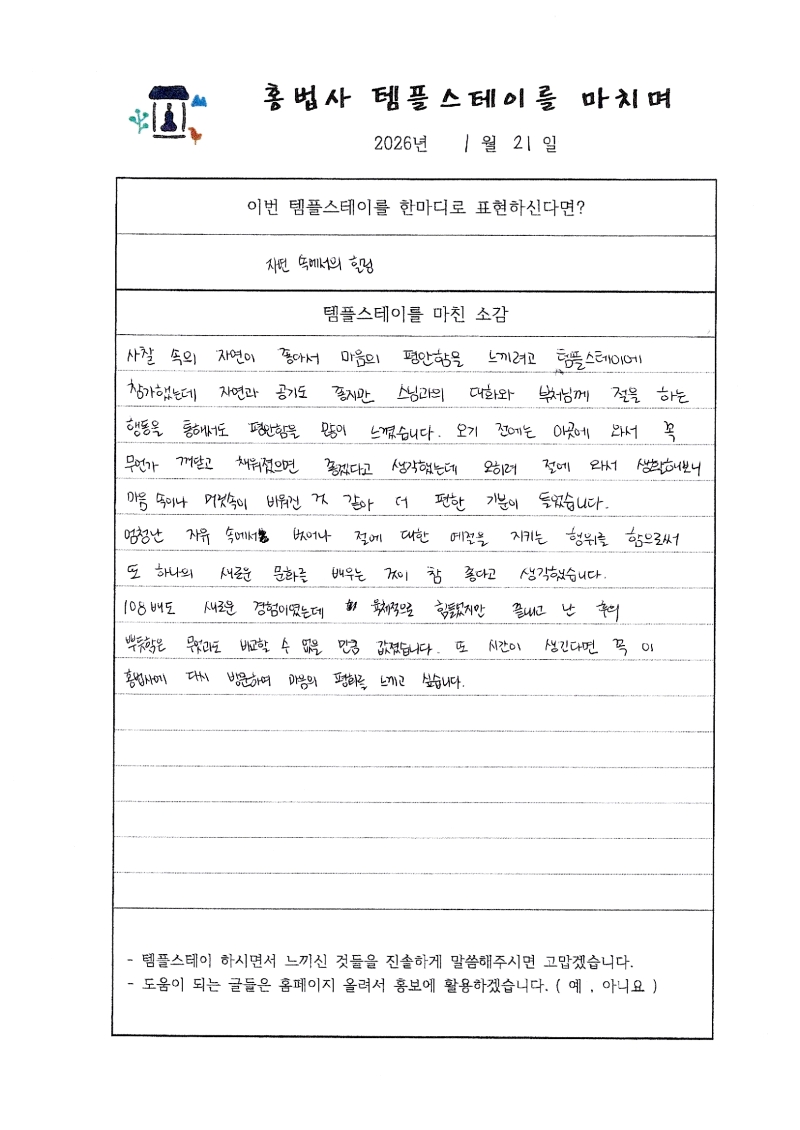 홍법사 템플스테이를 마치며
2026년 1월 21일
이번 템플스테이를 한마디로 표현하신다면?
자연 속에서의 힐링
템플스테이를 마친 소감
사찰 속의 자연이 좋아서 마음의 평안함을 느끼려고 템플스테이에
참가했는데 자연과 공기도 좋지만 스님과의 대화와 부처님께 절을 하는
행동을 통해서도 평안함을 많이 느꼈습니다. 오기 전에는 이곳에 와서 꼭
무언가 깨닫고 채워졌으면 좋겠다고 생각했는데 오히려 절에 와서 생활해보니
마음 속이나 머릿속이 비워진 것 같아 더 편한 기분이 들었습니다.
엄청난 자유 속에서 벗어나 절에 대한 예절을 지키는 행위를 함으로써
또 하나의 새로운 문화를 배우는 것이 참 좋다고 생각했습니다.
108배도 새로운 경험이였는데 육체적으로 힘들었지만 끝내고 난 후의
뿌듯함은 무엇과도 비교할 수 없을 만큼 값졌습니다. 또 시간이 생긴다면 꼭 이
홍법사에 다시 방문하여 마음의 평화를 느끼고 싶습니다.
- 템플스테이 하시면서 느끼신 것들을 진솔하게 말씀해주시면 고맙겠습니다.
- 도움이 되는 글들은 홈페이지 올려서 홍보에 활용하겠습니다. ( 예 , 아니요 )